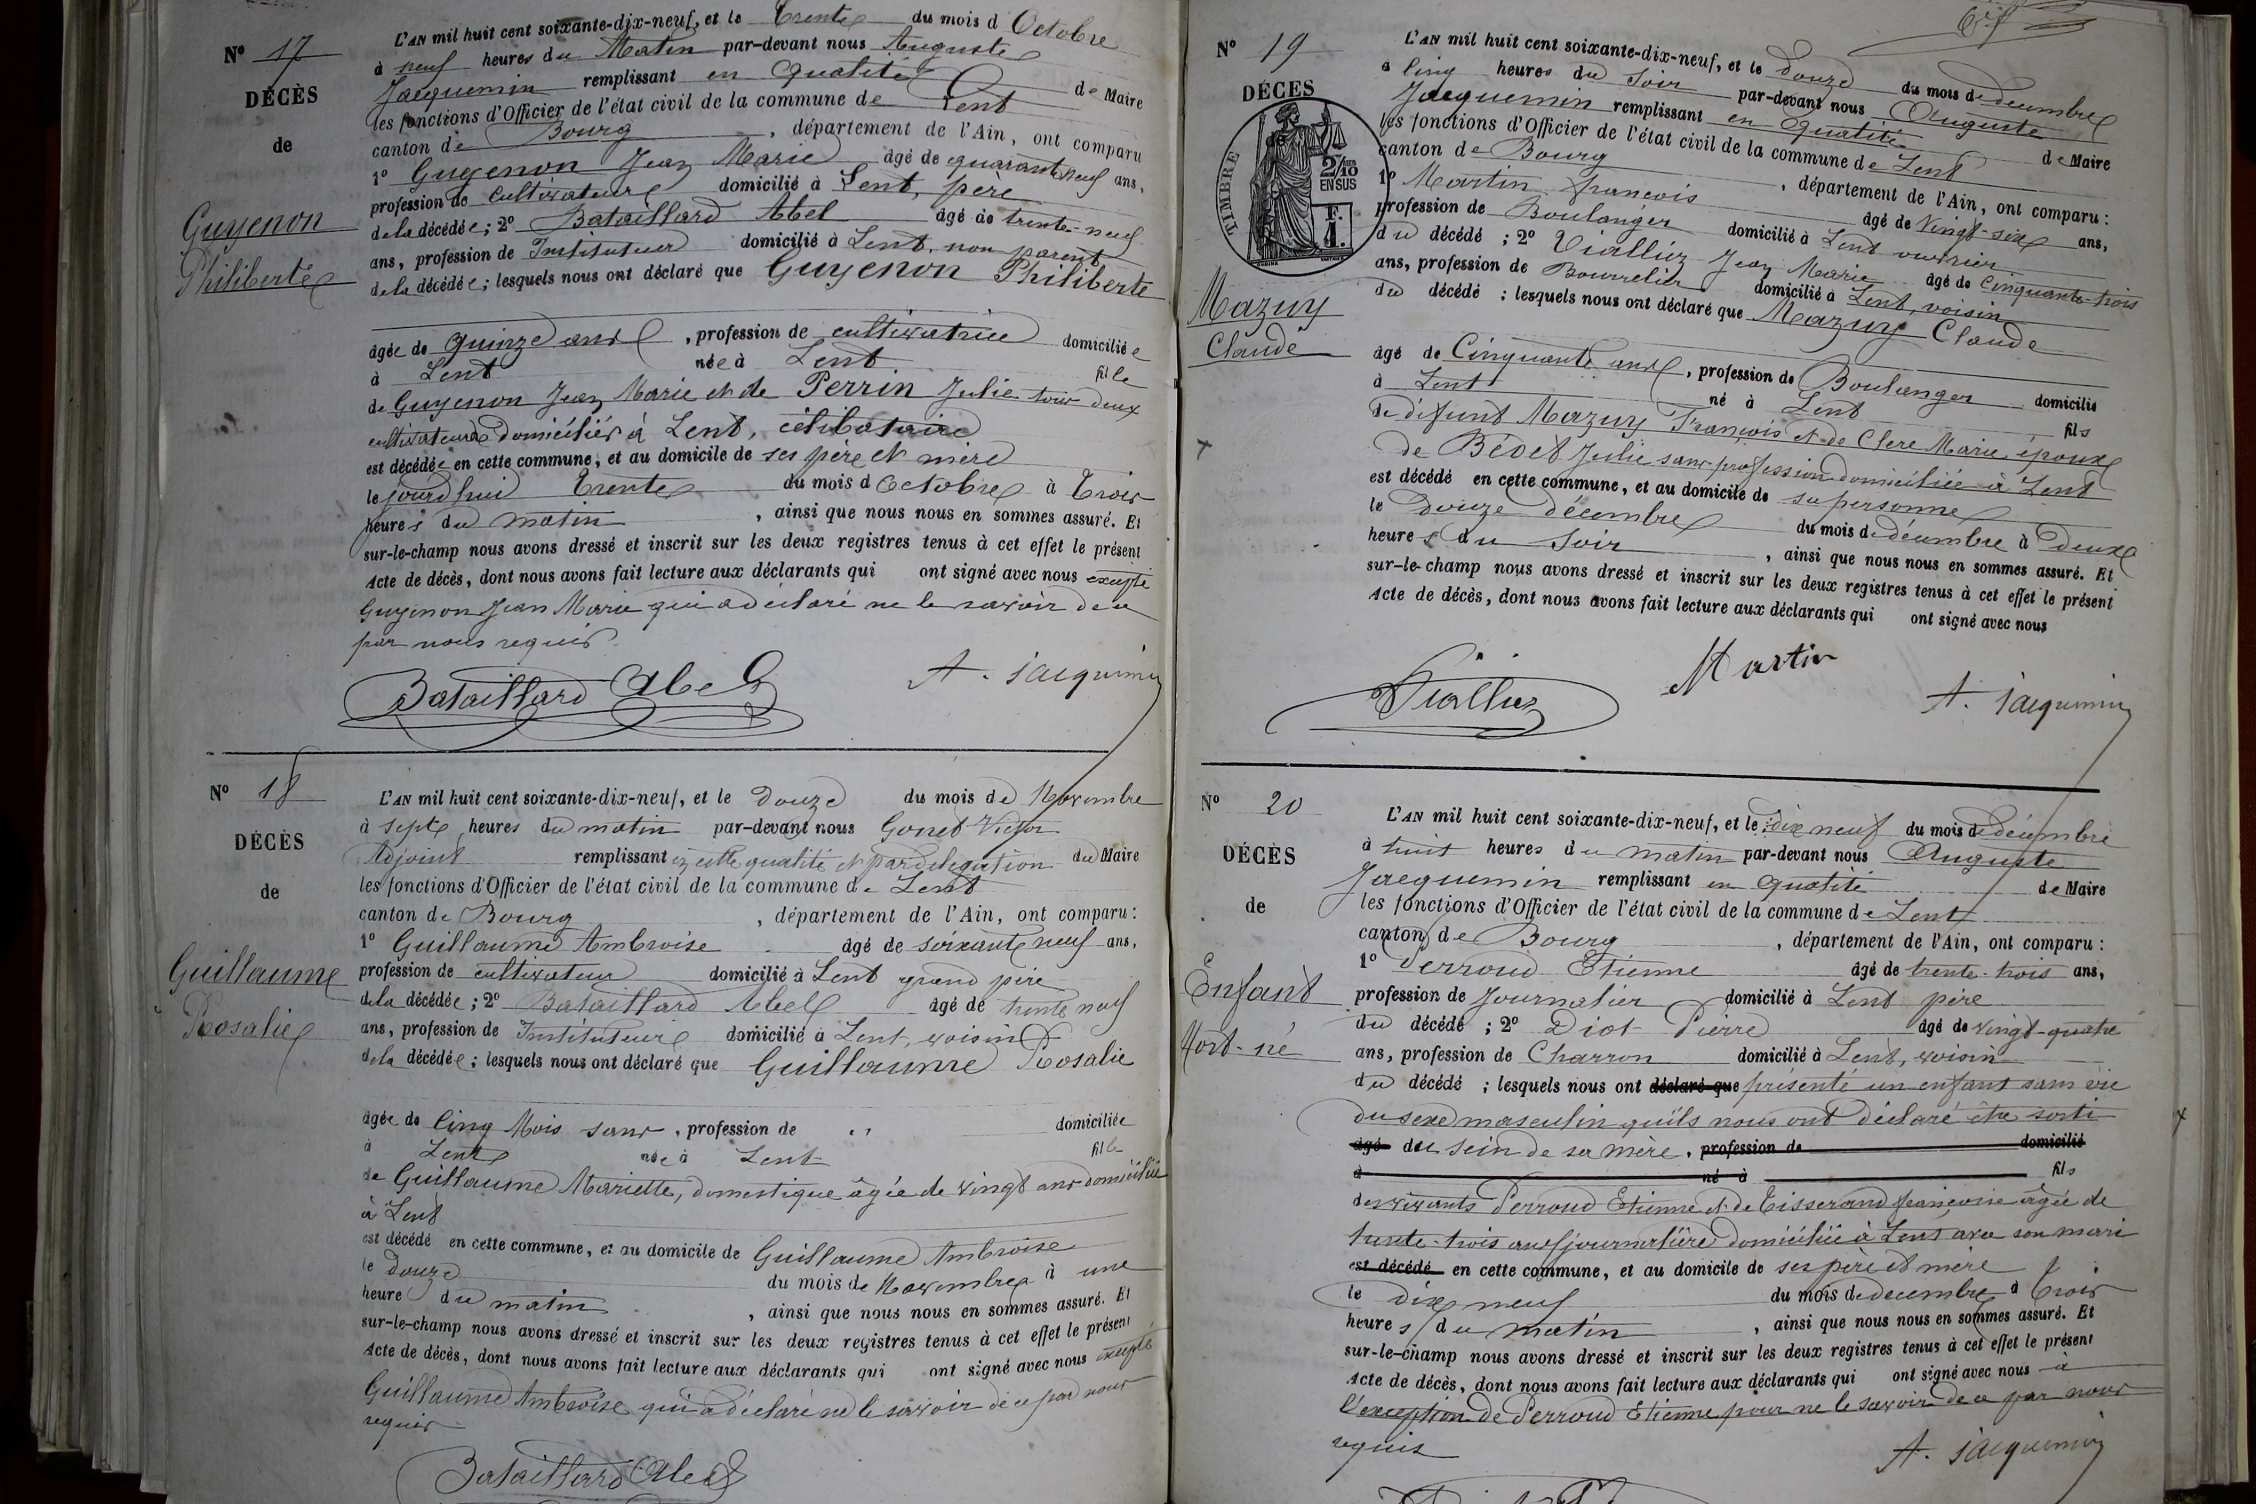 N° 17
DÉCÈS
de
Guyenon
Philiberte
L'AN mil huit cent soixante-dix-neuf, et le trente du mois d'Octobre
à neuf heures du Matin par-devant nous Auguste
Jacquemin remplissant en qualité de Maire
les fonctions d'Officier de l'état civil de la commune de Lent
canton de Bourg, département de l'Ain, ont comparu
1° Guyenon Jean Marie âgé de quarante neuf ans,
profession de cultivateur domicilié à Lent, père
de la décédée; 2° Bataillard Abel âgé de trente-neuf
ans, profession de Instituteur domicilié à Lent, non parent
de la décédée; lesquels nous ont déclaré que Guyenon Philiberte
âgée de quinze ans, profession de cultivatrice domiciliée
à Lent née à Lent fille
de Guyenon Jean Marie et de Perrin Julie tous deux
cultivateurs domiciliés à Lent, célibataire
est décédée en cette commune, et au domicile de ses père et mère
le jourd'hui trente du mois d'Octobre à trois
heures du matin, ainsi que nous nous en sommes assuré. Et
sur-le-champ nous avons dressé et inscrit sur les deux registres tenus à cet effet le présent
Acte de décès, dont nous avons fait lecture aux déclarants qui ont signé avec nous excepté
Guyenon Jean Marie qui a déclaré ne le savoir de ce
par nous requis.
Bataillard Abel A. Jacquemin
N° 18
DÉCÈS
de
Guillaume
Rosalie
L'AN mil huit cent soixante-dix-neuf, et le douze du mois de Novembre
à sept heures du matin par-devant nous Gonet Victor
Adjoint remplissant en cette qualité et par délégation du Maire
les fonctions d'Officier de l'état civil de la commune de Lent
canton de Bourg, département de l'Ain, ont comparu:
1° Guillaume Ambroise âgé de soixante neuf ans,
profession de cultivateur domicilié à Lent grand père
de la décédée; 2° Bataillard Abel âgé de trente neuf
ans, profession de Instituteur domicilié à Lent, voisin
de la décédée; lesquels nous ont déclaré que Guillaume Rosalie
âgée de Cinq Mois sans, profession de ,, domiciliée
à Lent née à Lent fille
de Guillaume Mariette, domestique âgée de vingt ans domiciliée
à Lent
est décédé en cette commune, et au domicile de Guillaume Ambroise
le douze du mois de Novembre à une
heure du matin, ainsi que nous nous en sommes assuré. Et
sur-le-champ nous avons dressé et inscrit sur les deux registres tenus à cet effet le présent
Acte de décès, dont nous avons fait lecture aux déclarants qui ont signé avec nous excepté
Guillaume Ambroise qui a déclaré ne le savoir de ce par nous
requis
Bataillard Abel
N° 19
DÉCÈS
de
TIMBRE
2/10
EN SUS
F.
1.
Mazuy
Claude
L'AN mil huit cent soixante-dix-neuf, et le douze du mois de decembre
à cinq heures du soir par-devant nous Auguste
Jacquemin remplissant en qualité de Maire
les fonctions d'Officier de l'état civil de la commune de Lent
canton de Bourg, département de l'Ain, ont comparu:
1° Martin françois âgé de Vingt-six ans,
profession de Boulanger domicilié à Lent ouvrier
du décédé; 2° Vialliez Jean Marie âgé de cinquante-trois
ans, profession de Bourrelier domicilié à Lent, voisin
du décédé; lesquels nous ont déclaré que Mazuy Claude
âgé de Cinquante ans, profession de Boulanger domicilié
à Lent né à Lent fils
de défunt Mazuy François et de Clere Marie époux
de Bédet Julie sans profession domiciliée à Lent
est décédé en cette commune, et au domicile de sa personne
le Douze décembre du mois de décembre à Deux
heures du Soir, ainsi que nous nous en sommes assuré. Et
sur-le-champ nous avons dressé et inscrit sur les deux registres tenus à cet effet le présent
Acte de décès, dont nous avons fait lecture aux déclarants qui ont signé avec nous
Vialliez Martin A. Jacquemin
N° 20
DÉCÈS
de
Enfant
Mort-né
L'AN mil huit cent soixante-dix-neuf, et le dix neuf du mois de décembre
à huit heures du matin par-devant nous Auguste
Jacquemin remplissant en qualité de Maire
les fonctions d'Officier de l'état civil de la commune de Lent
canton de Bourg, département de l'Ain, ont comparu:
1° Perroud Etienne âgé de trente-trois ans,
profession de Journalier domicilié à Lent père
du décédé; 2° Diot Pierre âgé de vingt-quatre
ans, profession de Charron domicilié à Lent, voisin
du décédé; lesquels nous ont déclaré que présenté un enfant sans vie
du sexe masculin qu'ils nous ont déclaré être sorti
âgé du sein de sa mère, profession de domicilié
à né à fils
des vivants Perroud Etienne et de Tisserand françoise âgée de
trente-trois ans journalière domiciliée à Lent avec son mari
est décédé en cette commune, et au domicile de ses père et mère
le dix neuf du mois de decembre à trois
heures du matin, ainsi que nous nous en sommes assuré. Et
sur-le-champ nous avons dressé et inscrit sur les deux registres tenus à cet effet le présent
Acte de décès, dont nous avons fait lecture aux déclarants qui ont signé avec nous à
l'exception de Perroud Etienne pour ne le savoir de ce par nous
requis
A. Jacquemin